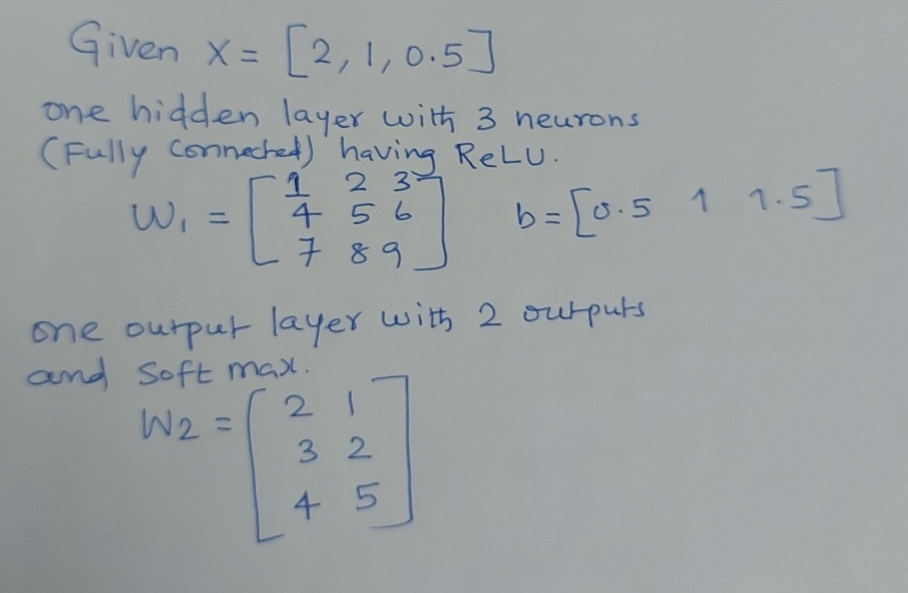 Given X = [2, 1, 0.5]
one hidden layer with 3 neurons
(Fully Connected) having ReLU.
W₁ = [1 2 3
4 5 6
7 8 9] b = [0.5 1 1.5]
one output layer with 2 outputs
and Soft max.
W2 = [2 1
3 2
4 5]